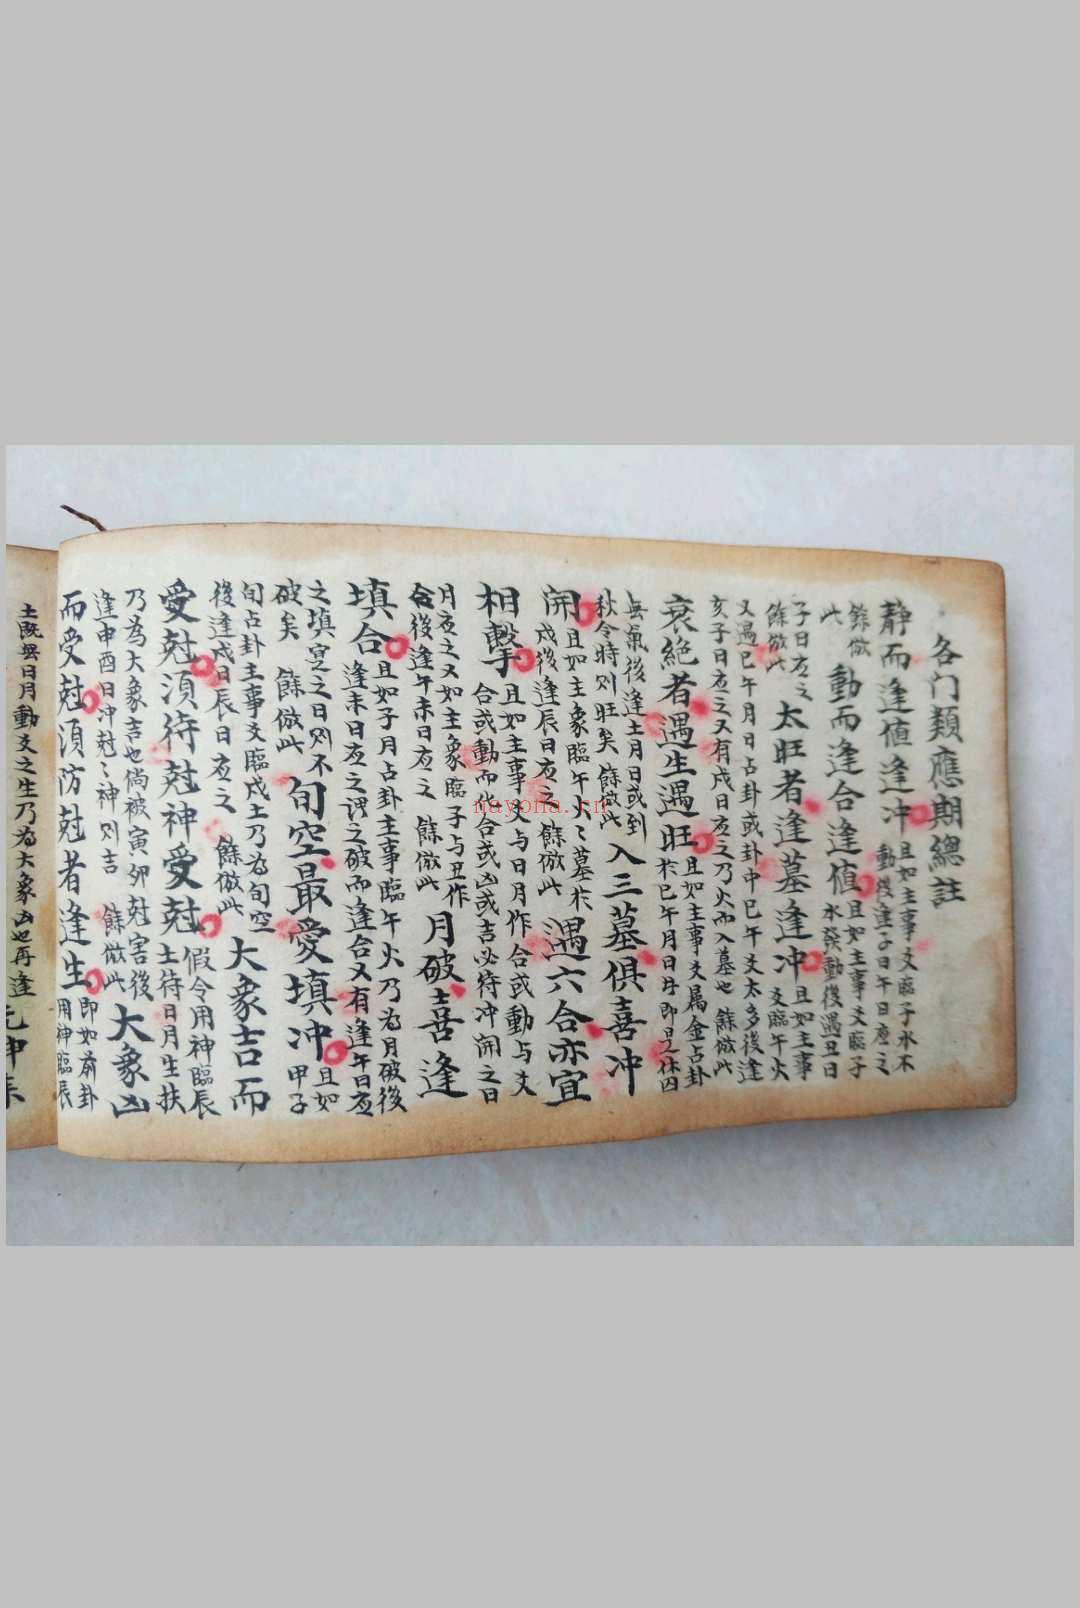 各门類應期總註
靜而逢值逢冲 且如主事爻臨子水不
動後逢子日午日應之
餘倣
此 動而逢合逢值 且如主事爻臨子
水發動後遇丑日
子日應之
餘倣此 太旺者逢墓逢冲 且如主事
爻臨午火
又遇巳午月日占卦或卦中巳午爻太多後逢
亥子日應之又有戌日應之乃火而入墓也 餘倣此
衰絕者遇生遇旺 且如主事爻属金占卦
於巳午月日 即是休囚
無氣後逢土月日或到
秋令時则旺矣 餘倣此 入三墓俱喜冲
開 且如主象臨午火〻墓於
戌後逢辰日應之 餘倣此 遇六合亦宜
相擊 且如主事爻与日月作合或動与爻
合或動而化合或凶或吉必待冲開之日
月應之又如主象臨子与丑作
合後逢午未日應之 餘倣此 月破喜逢
填合 且如子月占卦主事臨午火乃為月破後
逢未日應之谓之破而逢合又有逢午日應
之填实之日则不
破矣 餘倣此 旬空最愛填冲 且如
甲子
旬占卦主事爻臨戌土乃為旬空
後逢戌日辰日應之 餘倣此 大象吉而
受尅須待尅神受尅 假令用神臨辰
土待日月生扶
乃為大象吉也倘被寅卯尅害後
逢申酉日冲尅〻神则吉 餘倣此 大象凶
而受尅須防尅者逢生 即如前卦
用神臨辰
土既無日月動爻之生乃為大象凶也再逢
元神
nayona.cn